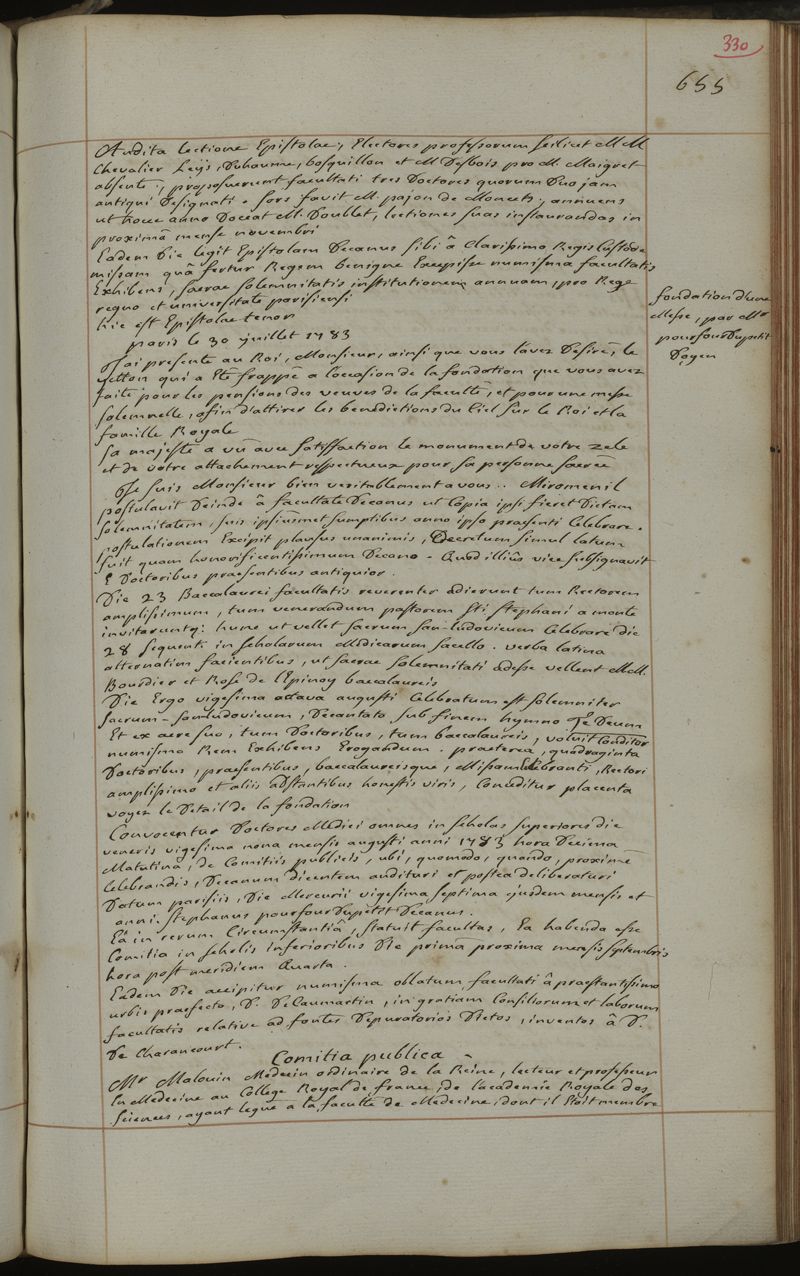 330
655
Audita lectione Epistolae, Electores professorum scilicet MM
Chevalier Leÿs, Duhaume, bosquillon et M Desbois pro M. Maigret
absente, proposuerunt facultati tres Doctores quorum Duo jam
antiqui Designati. Sors favit M. pajon de Moncets, annuens
ut hocce anno Doceat M. Doublet, lectiones suas instaurandas in
proximâ mense novembri
Eadem Die legit Epistolam Decanus sibi â Clarissimo Regis Custode
missam quâ fertur Regem benigne Excepisse numisma facultatis
Exhibens, sacrae solemnitatis institutionem annuam, pro Rege
regno et universitate parisiensi
hic est Epistolae tenor
paris le 30 juillet 1783
J'ai presenté au Roi, Monsieur, ainsi que vous l'avez Desiré, le
jetton qui a Eté frappé a l'occasion de la fondation que vous avez
faite pour les pensions des veuves de la faculté, et pour une messe
solemnelle, afin d'attirer les benedictions du Ciel sur le Roi et la
famille Royale
Sa majesté a vû avec satisfaction le monument de votre zele
et de votre attachement respectueux pour sa personne sacrée
Je suis Monsieur bien veritablement a vous .. Miromenil
postulavit Deinde â facultate Decanus ut Copia ipsi fieret Dictam
solemnitatem, suis ipsiusmet sumptibus anno ipso praesenti Celebrare.
postulationem Excipit plausus unanimis, Decretum simul latum
fuit quam honorificentissimum Decano. Quod illius vice subsignavit
E Doctoribus praesentibus antiquior.
Die 23 Baccalaurei facultatis reverenter adierunt tum Rectorem
amplissimum, tum venerandum pastorem Sti stephani a monte
invitaruntq: hunc ut vellet sacrum san-ludovicum Celebrare die
28 sequenti in scholarum Medicarum sacello. verba latina
alternatim facientibus, ut sacrae solemnitati adesse vellent MM.
Bourdier et Rose de l'Epinoy baccalaureis
Die Ergo vigesima octava augusti Celebratum est solemniter
sacrum-sanludovicum, Decantato sub finem hymno Te Deum
Et ex aere suo, tum Doctoribus, tum baccalaureis, voluit Conditor
numisma Rem Exhibens Erogandum. praeterea, quadraginta
Doctoribus, praesentibus, baccalaureisque, Missam Celebranti, Rectori
amplissimo et aliis adstantibus honestis viris, Conceditur placenta
voyez le Detail de la fondation
Convocentur Doctores Medici omnes in scholas superiores die
veneris vigesima nona mensis augusti anni 1783 hora Decima
Matutina, de Comitiis publicis, ubi, quomodo, quando, proximè
Celebrandis, Decanum dicentem audituri et postea deliberaturi
Datum parisiis, Die Mercurii vigesima septima ejusdem mensis et
anni. Stephanus pourfour Dupetit Decanus.
Eâ in rerum Circumstantiâ, statuit facultas, Ea habenda esse
Comitia in scholis inferioribus Die primâ proxima mensis septembris
hora post meridiem Quarta.
Eadem Die accipitur numisma oblatum facultati â praestantissimo
urbis praefecto, D. De Caumartin, in gratiam Consiliorum et laborum
facultatis relative ad fontes Depuratorios Dictos, inventos â D.
De Charancourt.
Comitia publica
Mr Malouin Medecin ordinaire de la Reine, lecteur et professeur
En Medecine au College Royal de france, de l'academie Royale des
sciences, ayant legué a la faculté de Medecine, dont il Etoit membre
fondation d'une
Messe, par Mr
pourfour Dupetit
Doyen